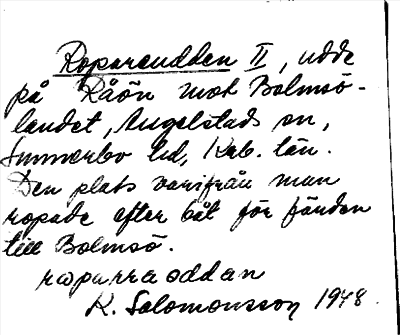 Ropareudden II, udde
på Råön mot Bolmsö-
landet, Angelstads sn,
Sunnerbo hd, Krb. län.
Den plats varifrån man
ropade efter båt för färden
till Bolmsö.
roparraoddan
K. Salomonsson 1948.